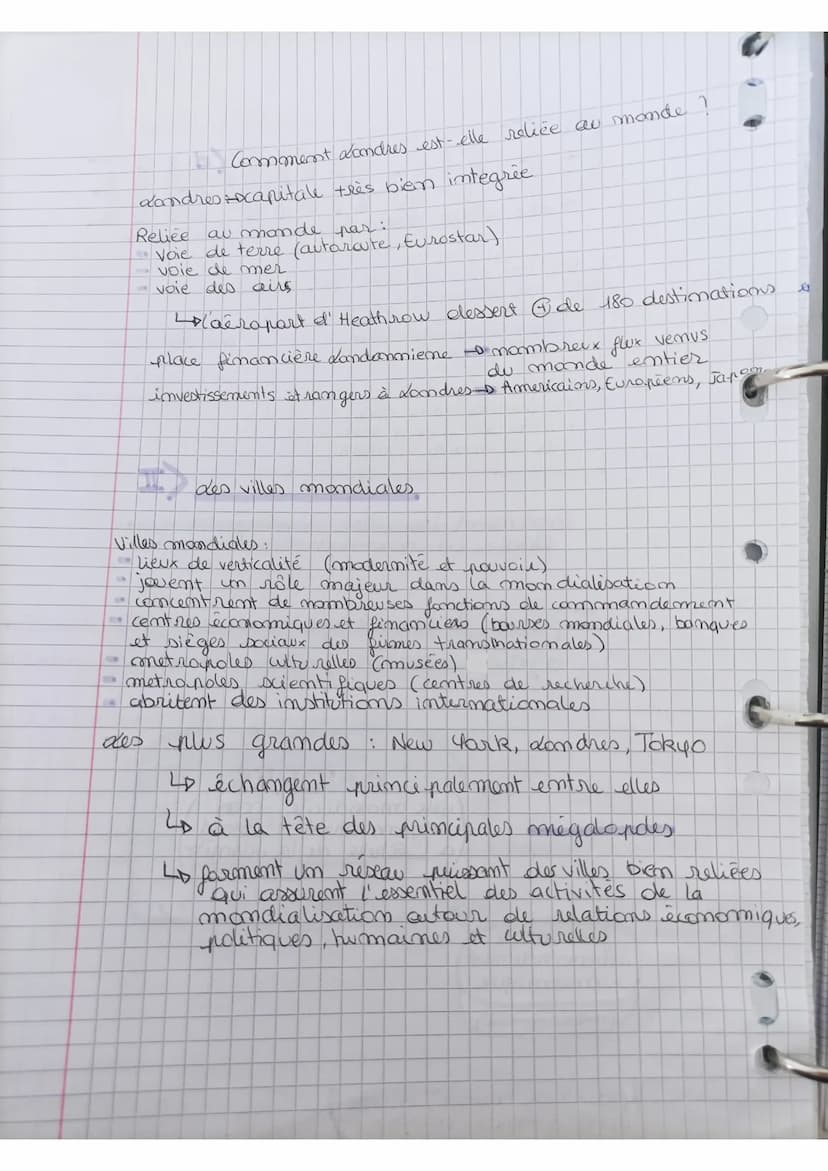 Comment Londres est-elle reliée au monde ?
Londres → capitale très bien integrée
Reliée au monde par :
- voie de terre (autoroute, Eurostar)
- voie de mer
- voie des airs
↳ l'aéroport d'Heathrow dessert ⊕ de 180 destinations
place financière londonnienne → nombreux flux venus
du monde entier
investissements étrangers à Londres → Americains, Européens, Japon
II) Les villes mondiales
Villes mondiales :
- lieux de verticalité (modernité et pouvoir)
- jouent un rôle majeur dans la mondialisation
- concentrent de nombreuses fonctions de commandement
- centres économiques et financiers (bourses mondiales, banques
et sièges sociaux des firmes transnationales)
- métropoles culturelles (musées)
- metropoles scientifiques (centres de recherche)
- abritent des institutions internationales
Les plus grandes : New York, Londres, Tokyo
↳ échangent principalement entre elles
↳ à la tête des principales mégalopoles
↳ forment un réseau puissant des villes bien reliées
qui assurent l'essentiel des activités de la
mondialisation autour de relations économiques,
politiques, humaines et culturelles